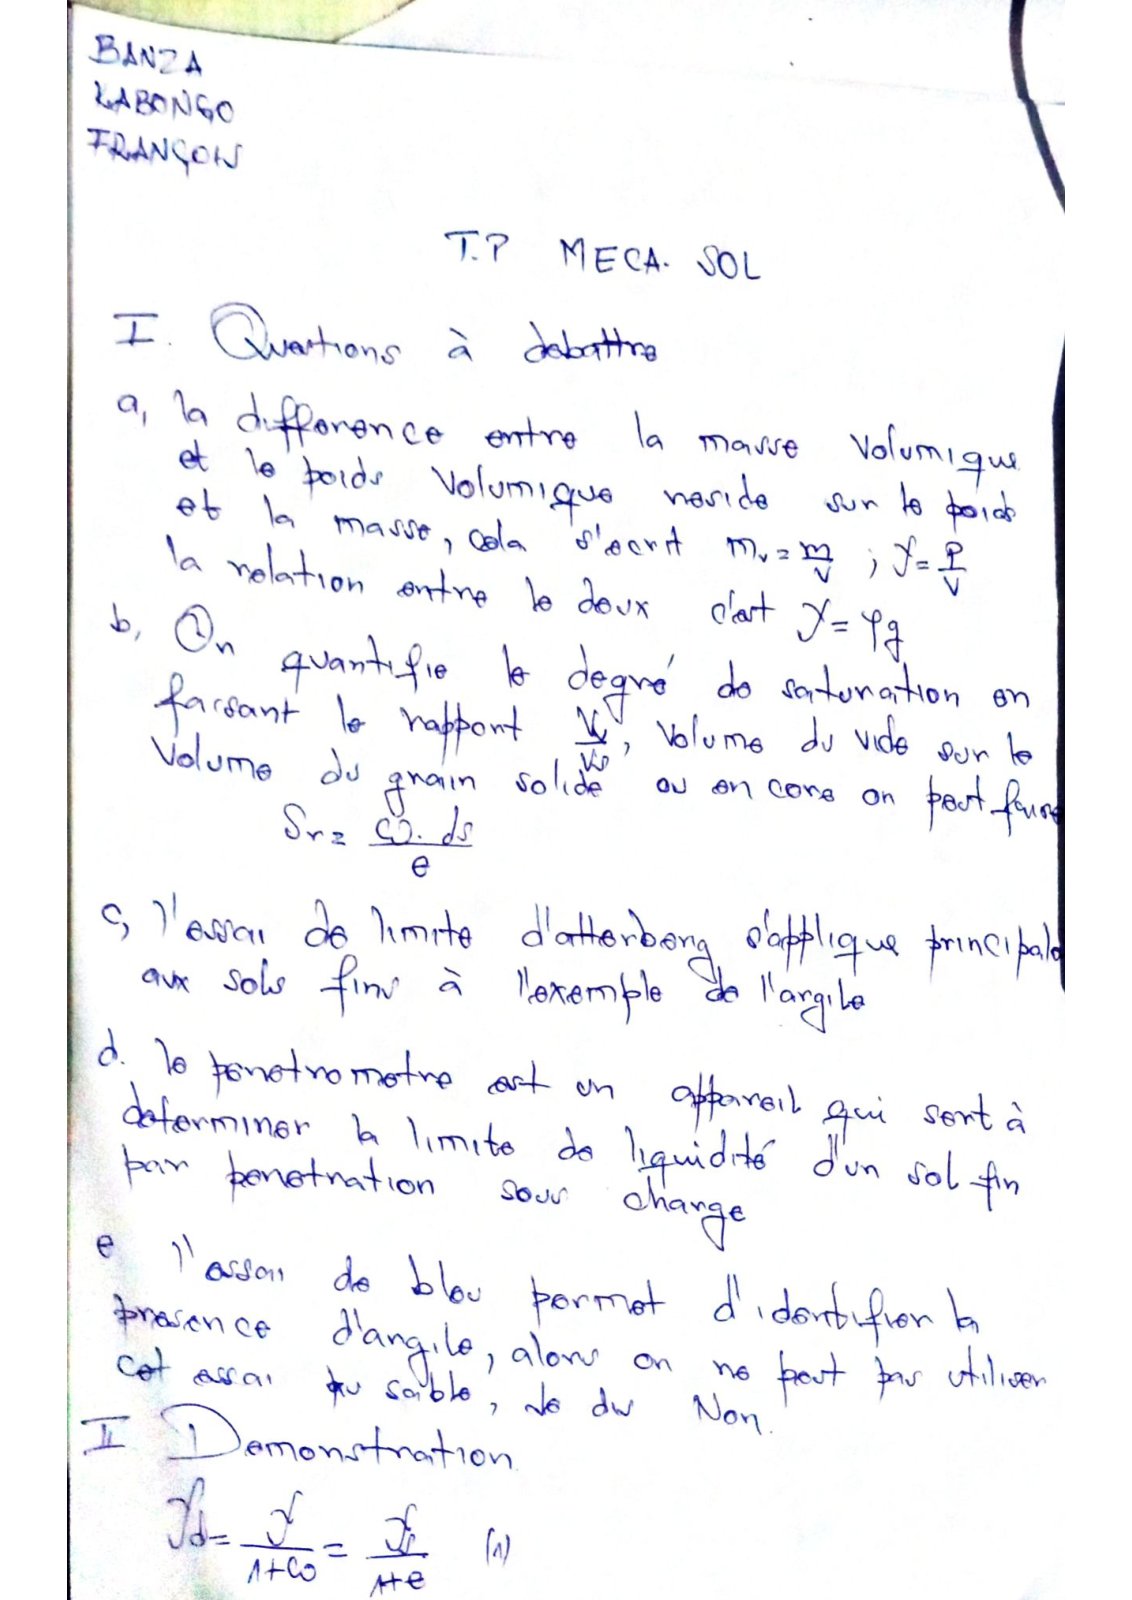 BANZA
KABONGO
FRANÇOIS
T.P MECA. SOL
I. Questions à debattre
a, la difference entre la masse volumique
et le poids volumique reside sur le poids
et la masse, cela s'ecrit mv = m/v ; γ = P/v
la relation entre le deux c'est γ = φg
b, On quantifie le degré de saturation en
faisant le rapport Vv/Vs, volume du vide sur le
volume du grain solide ou encore on peut faire
Sr = ω. ds/e
c, l'essai de limite d'atterberg s'applique principale
aux sols fins à l'exemple de l'argile
d. le penetrometre est un appareil qui sert à
determiner la limite de liquidité d'un sol fin
par penetration sous charge
e l'essai de bleu permet d'identifier la
presence d'argile, alors on ne peut pas utiliser
cet essai au sable, Je dis Non.
II Demonstration
γd = γ/1+ω = γs/1+e (1)